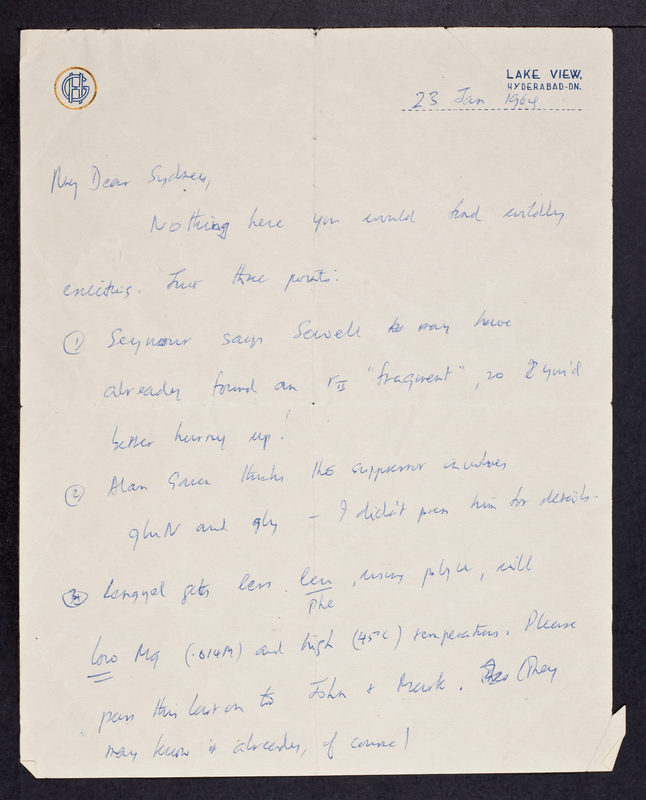 GH
LAKE VIEW,
HYDERABAD-DN.
23 Jan 1964
My Dear Sydney,
Nothing here you would find wildly
exciting. Just three points:
① Seymour says Sewell may have
already found an rII "fragment", so you'd
better hurry up!
② Alan Garen thinks the suppressor involves
gluN and gly — I didn't press him for details.
③ Lengyel gets less leu/phe, using poly U, with
low Mg (.014M) and high (45°C) temperature. Please
pass this last on to John & Mark. (They
may know it already, of course)